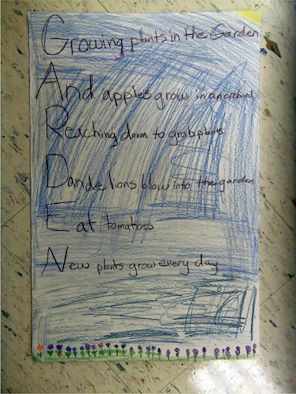 Growing plants in the Garden
And apples grow in an orchard
Reaching down to grab plants
Dandelions blow into the garden
Eat tomatoes
New plants grow every day